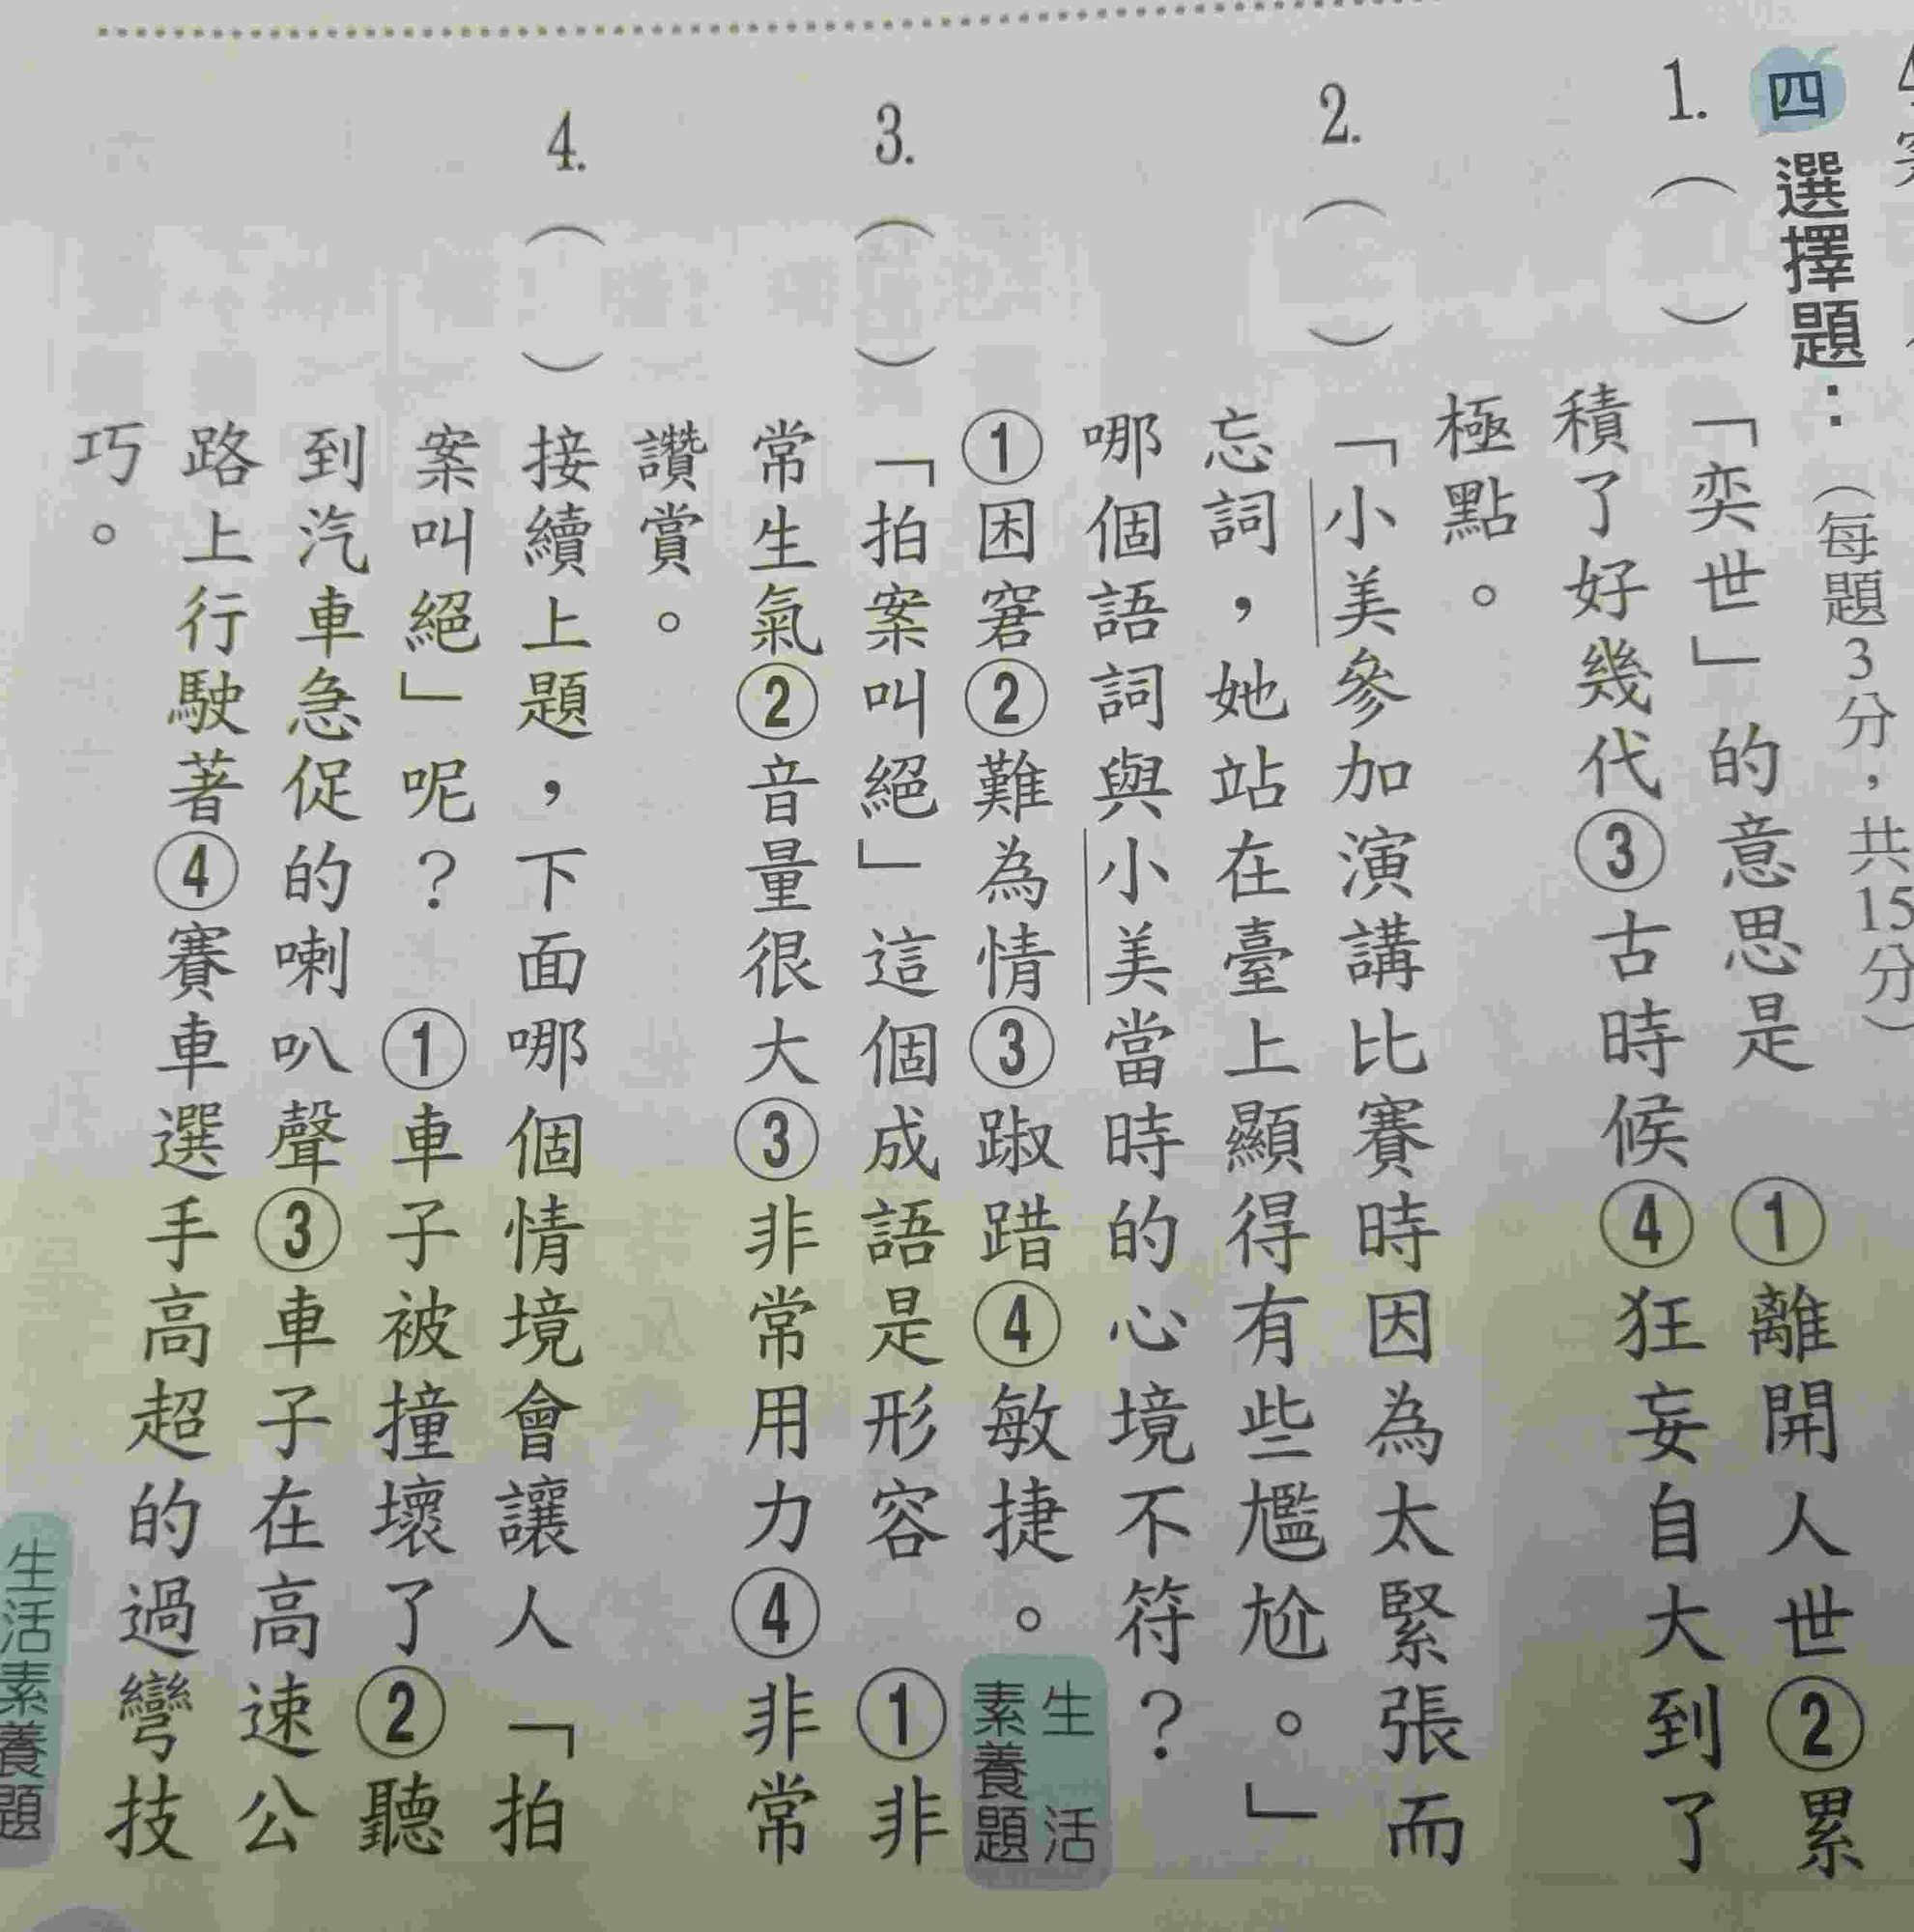 四 選擇題：（每題3分，共15分）
1.（　）「奕世」的意思是　①離開人世②累
積了好幾代③古時候④狂妄自大到了
極點。
2.（　）「小美參加演講比賽時因為太緊張而
忘詞，她站在臺上顯得有些尷尬。」
哪個語詞與小美當時的心境不符？
①困窘②難為情③踧踖④敏捷。
生活
素養題
3.（　）「拍案叫絕」這個成語是形容　①非
常生氣②音量很大③非常用力④非常
讚賞。
4.（　）接續上題，下面哪個情境會讓人「拍
案叫絕」呢？　①車子被撞壞了②聽
到汽車急促的喇叭聲③車子在高速公
路上行駛著④賽車選手高超的過彎技
巧。
生活素養題